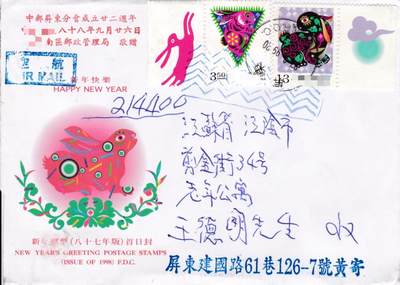 中郵屏東分會成立廿二週年
八十八年九月廿六日
南區郵政管理局 敬贈
航空
AIR MAIL
新年快樂
HAPPY NEW YEAR
3.50
13
214400
江蘇省 江陰市
剪金街34号
老年公寓
王德明先生 收
新年郵票(八十七年版)首日封
NEW YEAR'S GREETING POSTAGE STAMPS
(ISSUE OF 1998) F.D.C.
屏東建國路61巷126-7號黃寄